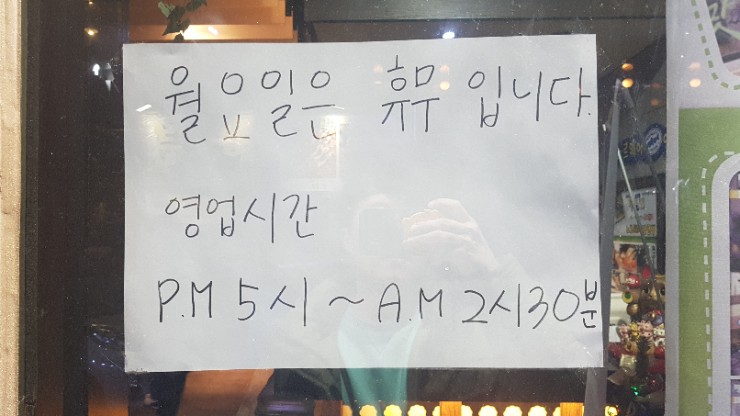 월요일은 휴무 입니다.
영업시간
P.M 5시 ~ A.M 2시30분